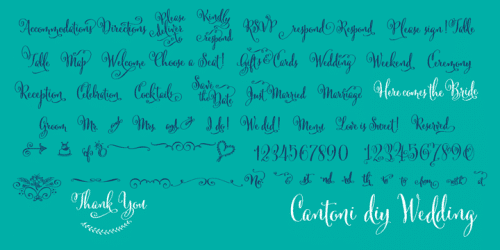 Accommodations Directions Please deliver to Kindly respond RSVP respond Respond Please sign! Table
Table Map Welcome Choose a Seat! Gifts & Cards Wedding Weekend Ceremony
Reception Celebration Cocktails Save the Date Just Married Marriage Here comes the Bride
Groom Mr. Mrs. I do! We did! Menu Love is Sweet! Reserved
1234567890 1234567890
Thank You
Cantoni diy Wedding